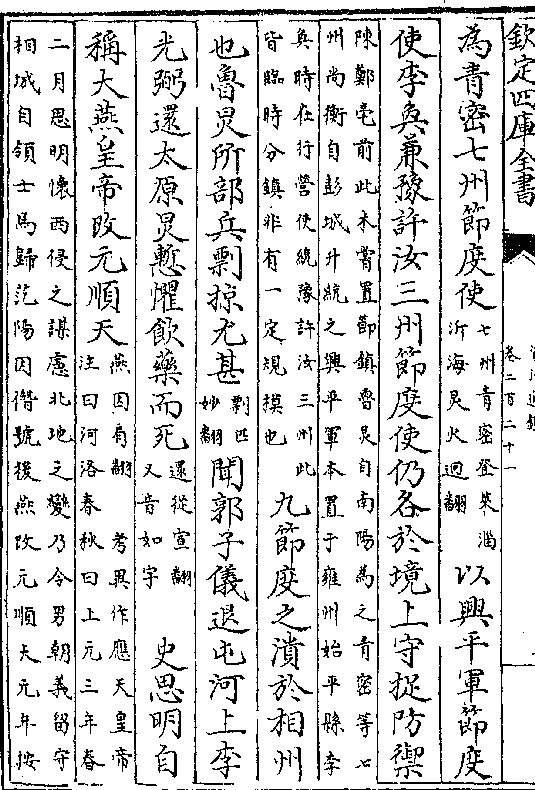 欽定四庫全書
卷二百二十一
為青密七州節度使七州青密登萊淄
沂海炅火迥翻以興平軍節度
使李奐兼豫許汝三州節度使仍各於境上守捉防禦
陳鄭亳前此未嘗置節鎮魯炅自南陽為之青密等七
州尚衡自彭城升統之興平軍本置于雍州始平縣李
奐時在行營使統豫許汝三州此
皆臨時分鎮非有一定規模也九節度之潰於相州
也魯炅所部兵剽掠尤甚剽匹
妙翻聞郭子儀退屯河上李
光弼還太原炅慙懼飲藥而死還從宣翻
又音如字史思明自
稱大燕皇帝改元順天燕因肩翻考異作應天皇帝
注曰河洛春秋曰上元三年春
二月思明懷西侵之謀慮北地之變乃令男朝義留守
相城自領士馬歸范陽因僭號後燕改元順天元年按